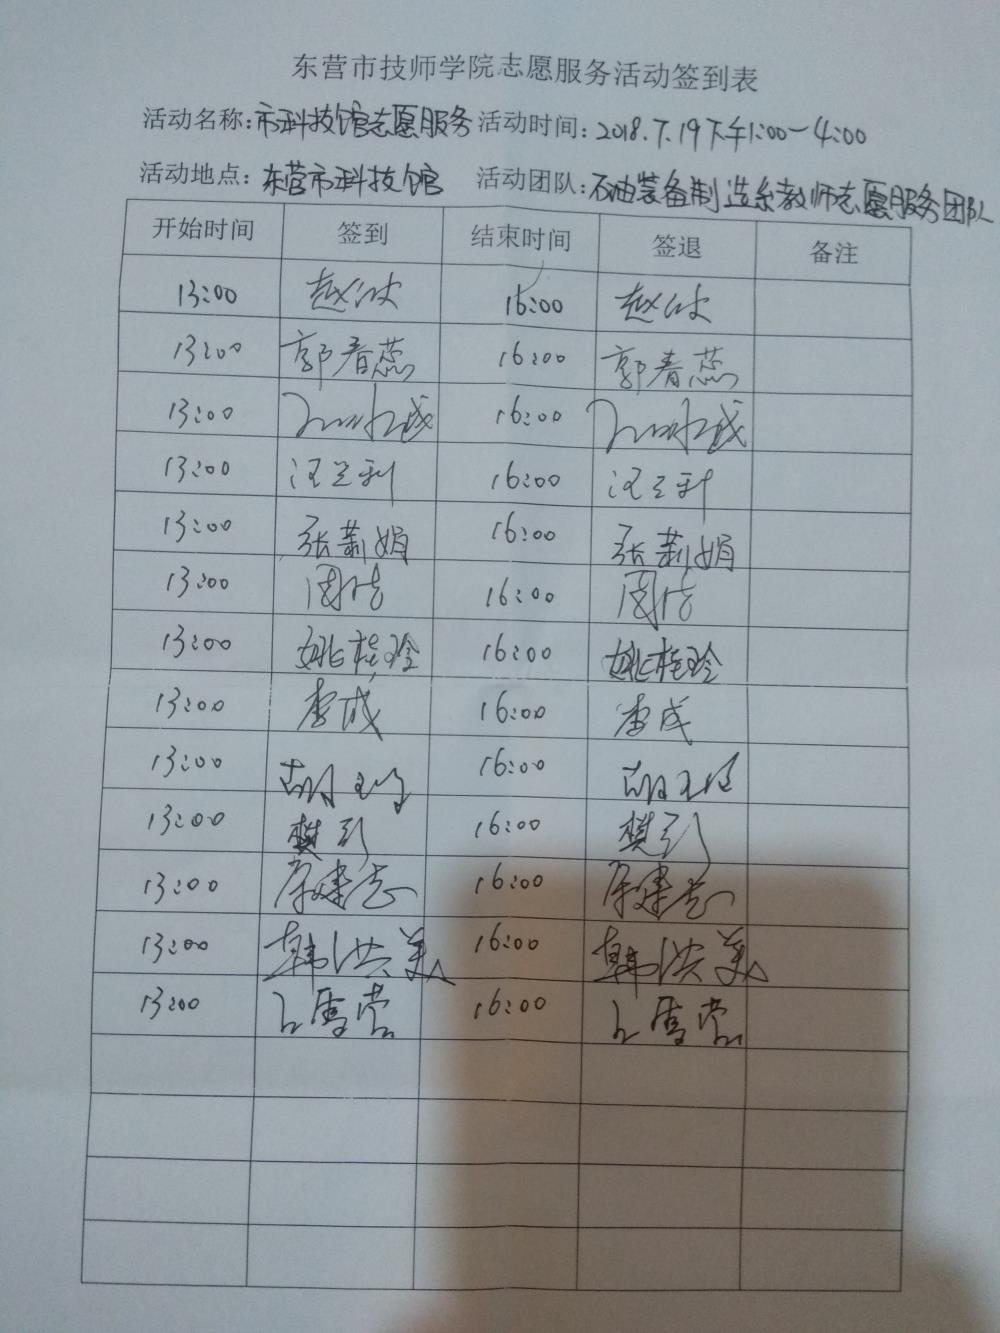 东营市技师学院志愿服务活动签到表
活动名称:市科技馆志愿服务 活动时间:2018.7.19下午1:00-4:00
活动地点:东营市科技馆 活动团队:石油装备制造系教师志愿服务团队
开始时间 签到 结束时间 签退 备注
13:00 赵 16:00 赵
13:00 郭春蕊 16:00 郭春蕊
13:00 16:00
13:00 汪兰利 16:00 汪兰利
13:00 张莉娟 16:00 张莉娟
13:00 周洁 16:00 周洁
13:00 姚桂玲 16:00 姚桂玲
13:00 李成 16:00 李成
13:00 胡玉 16:00 胡玉
13:00 樊引 16:00 樊引
13:00 建志 16:00 建志
13:00 韩洪美 16:00 韩洪美
13:00 雪莹 16:00 雪莹